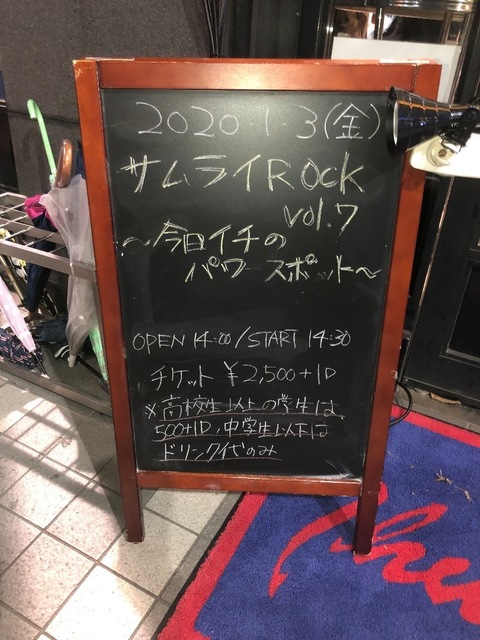 2020.1.3(金)
サムライROCK
vol.7
～今日イチの
パワースポット～
OPEN 14:00/START 14:30
チケット ¥2,500+1D
※高校生以上の学生は、
500+1D、中学生以下は
ドリンク代のみ